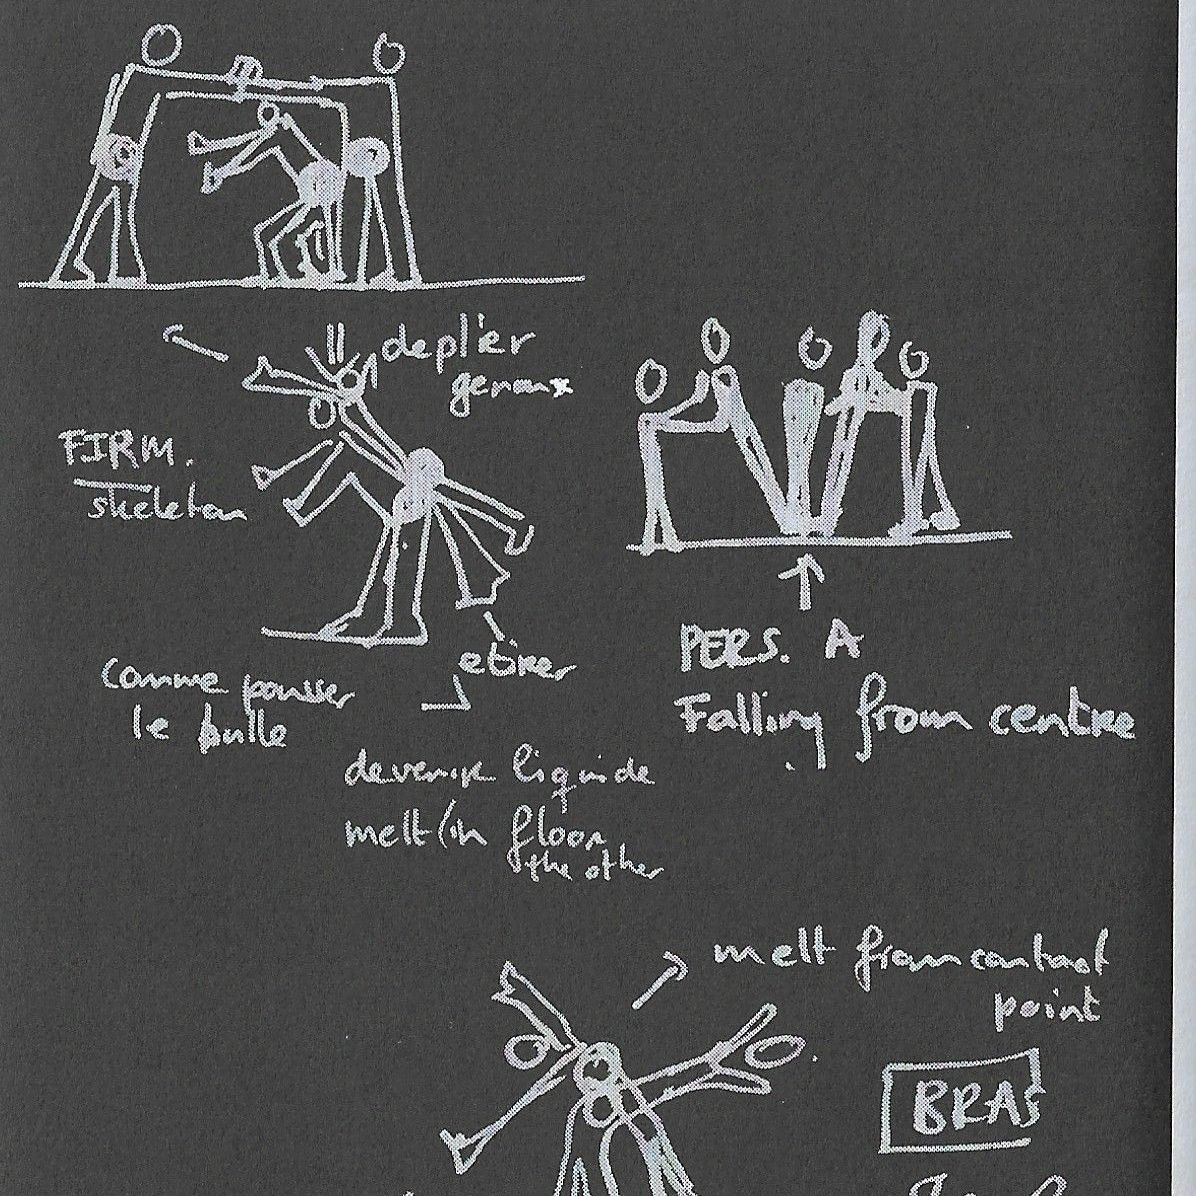 déplier
genoux
FIRM.
skeleton
etirer
comme pousser
le bulle
PERS. A
Falling from centre
devenir liquide
melt (in floor
the other
melt from contact
point
BRAS